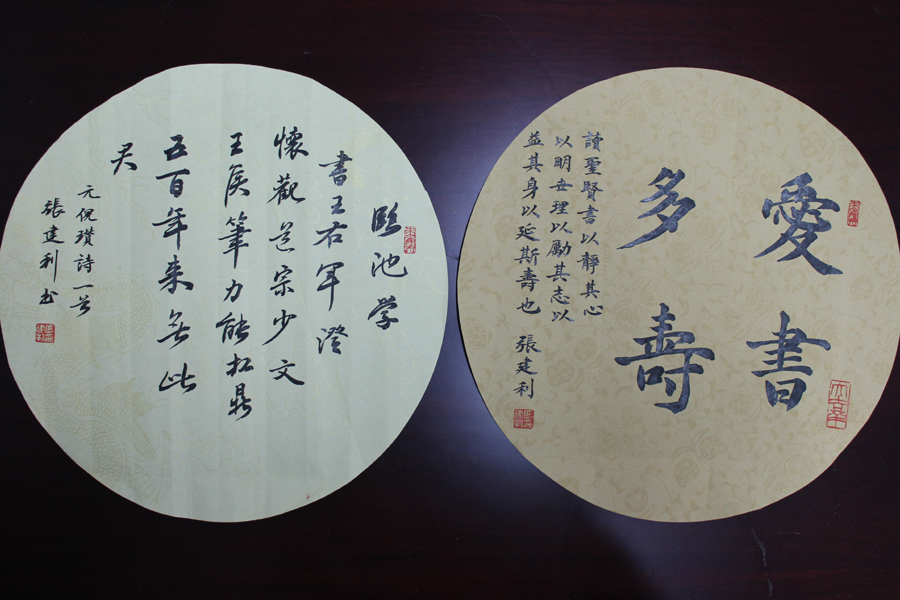 愛書
多壽
讀聖賢書以靜其心
以明世理以勵其志以
益其身以延斯壽也
張建利
臨池学
書王右军澄
懷觀道宗少文
王侯筆力能扛鼎
五百年来無此
君
元倪瓚詩一首
張建利书